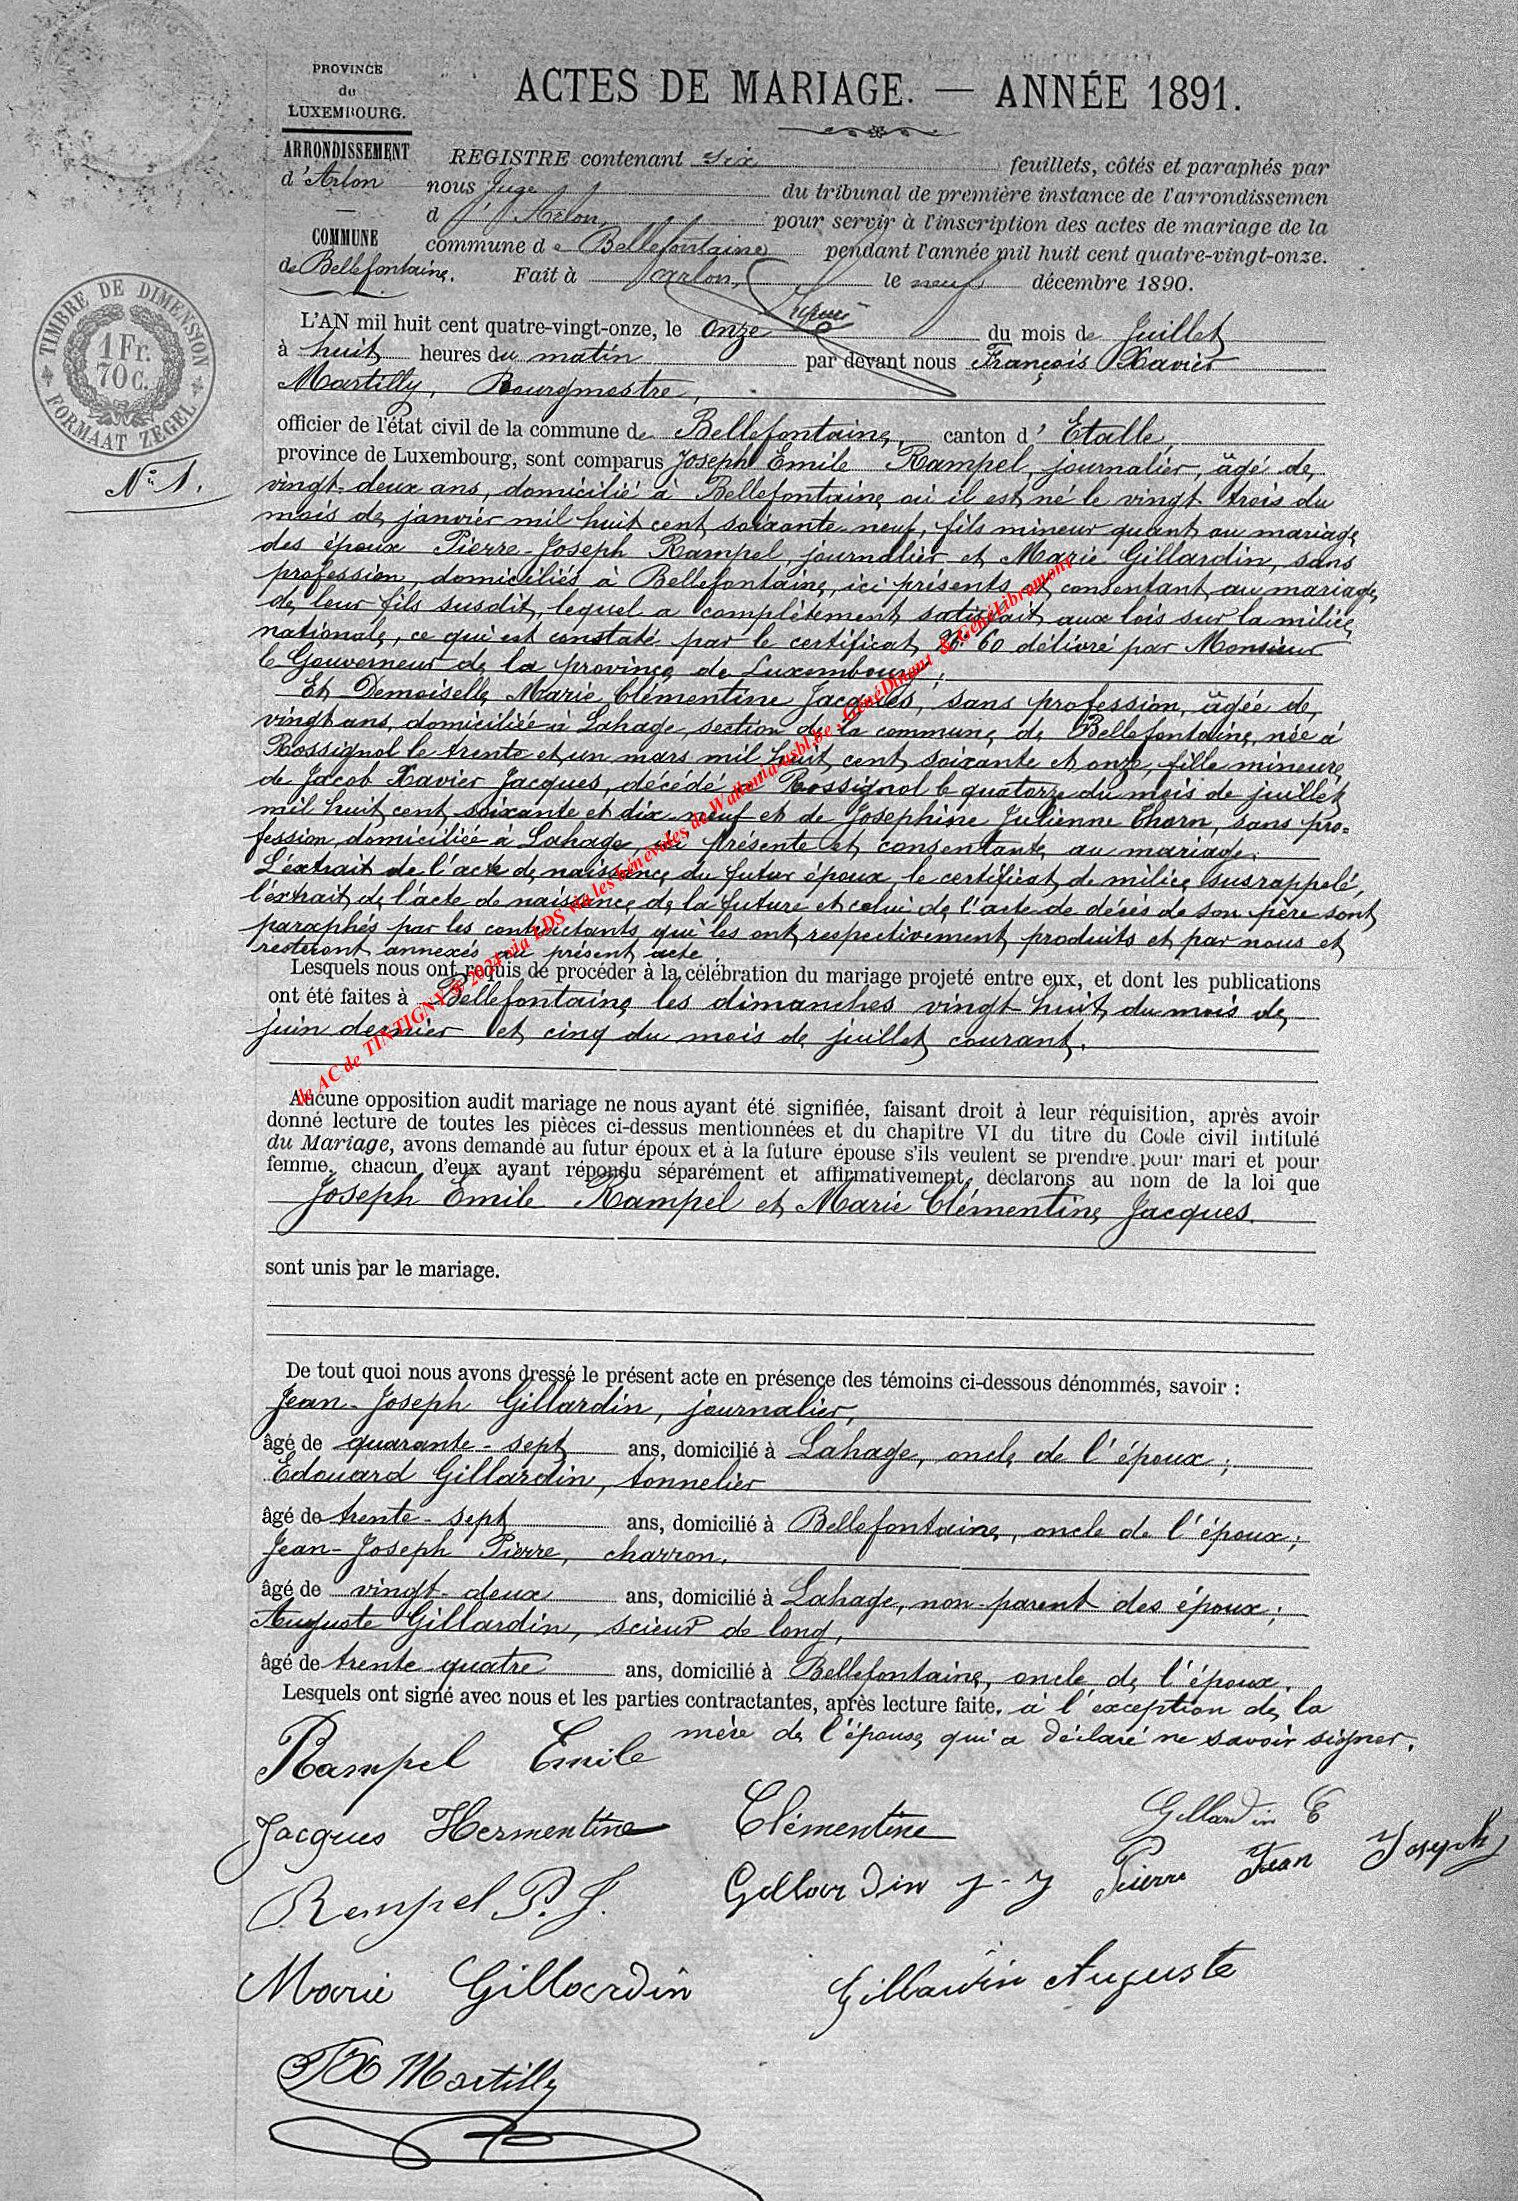 PROVINCE
du
LUXEMBOURG.
ARRONDISSEMENT
d'Arlon
COMMUNE
de Bellefontaine.
ACTES DE MARIAGE. — ANNÉE 1891.
REGISTRE contenant six feuillets, côtés et paraphés par
nous Juge du tribunal de première instance de l'arrondissemen
d'Arlon, pour servir à l'inscription des actes de mariage de la
commune de Bellefontaine pendant l'année mil huit cent quatre-vingt-onze.
Fait à Arlon, le neuf décembre 1890.
TIMBRE DE DIMENSION
1 Fr.
70 C.
FORMAAT ZEGEL
N° 1.
L'AN mil huit cent quatre-vingt-onze, le onze du mois de Juillet
à huit heures du matin par devant nous François Xavier
Martilly, Bourgmestre,
officier de l'état civil de la commune de Bellefontaine, canton d'Etalle,
province de Luxembourg, sont comparus Joseph Emile Rampel, journalier, âgé de
vingt-deux ans, domicilié à Bellefontaine où il est né le vingt-trois du
mois de janvier mil huit cent soixante-neuf, fils mineur quant au mariage
des époux Pierre-Joseph Rampel, journalier et Marie Gillardin, sans
profession, domiciliés à Bellefontaine, ici présents et consentant au mariage
de leur fils susdit, lequel a complètement satisfait aux lois sur la milice
nationale, ce qui est constaté par le certificat N° 60 délivré par Monsieur
le Gouverneur de la province de Luxembourg;
Et Demoiselle Marie Clémentine Jacques, sans profession, âgée de
vingt ans, domiciliée à Lahage, section de la commune de Bellefontaine, née à
Rossignol le trente et un mars mil huit cent soixante et onze, fille mineure
de Jacob Xavier Jacques, décédé à Rossignol le quatorze du mois de juillet
mil huit cent soixante et dix-neuf et de Josephine Julienne Thorn, sans pro=
fession, domiciliée à Lahage, ici présente et consentante au mariage.
L'extrait de l'acte de naissance du futur époux, le certificat de milice susrappelé,
l'extrait de l'acte de naissance de la future et celui de l'acte de décès de son père sont
paraphés par les contractants qui les ont respectivement produits et par nous et
resteront annexés au présent acte.
Lesquels nous ont requis de procéder à la célébration du mariage projeté entre eux, et dont les publications
ont été faites à Bellefontaine les dimanches vingt-huit du mois de
juin dernier et cinq du mois de juillet courant.
Aucune opposition audit mariage ne nous ayant été signifiée, faisant droit à leur réquisition, après avoir
donné lecture de toutes les pièces ci-dessus mentionnées et du chapitre VI du titre du Code civil intitulé
du Mariage, avons demandé au futur époux et à la future épouse s'ils veulent se prendre pour mari et pour
femme, chacun d'eux ayant répondu séparément et affirmativement, déclarons au nom de la loi que
Joseph Emile Rampel et Marie Clémentine Jacques.
sont unis par le mariage.
De tout quoi nous avons dressé le présent acte en présence des témoins ci-dessous dénommés, savoir :
Jean-Joseph Gillardin, journalier,
âgé de quarante-sept ans, domicilié à Lahage, oncle de l'époux;
Edouard Gillardin, tonnelier
âgé de trente-sept ans, domicilié à Bellefontaine, oncle de l'époux;
Jean-Joseph Pierre, charron,
âgé de vingt-deux ans, domicilié à Lahage, non-parent des époux;
Auguste Gillardin, scieur de long,
âgé de trente quatre ans, domicilié à Bellefontaine, oncle de l'époux.
Lesquels ont signé avec nous et les parties contractantes, après lecture faite, à l'exception de la
mère de l'épouse qui a déclaré ne savoir signer.
Rampel Emile
Jacques Hermentine Clémentine Gillardin E
Rempel P. J. Gillardin J-J Pierre Jean Joseph
Marie Gillardin Gillardin Auguste
FX Martilly
de AC de TINTIGNY © 2024 via FDS via les bénévoles de Wallonia-asbl.be , GénéDinant & GénéLibramont